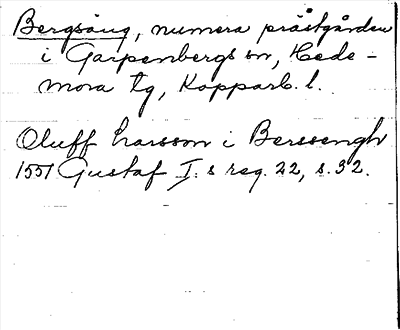 Bergsäng, numera prästgården
i Garpenbergs sn, Hede-
mora tg, Kopparb. l.
Oluff Larsson i Berssengh
1551 Gustaf I:s reg. 22, s. 32.